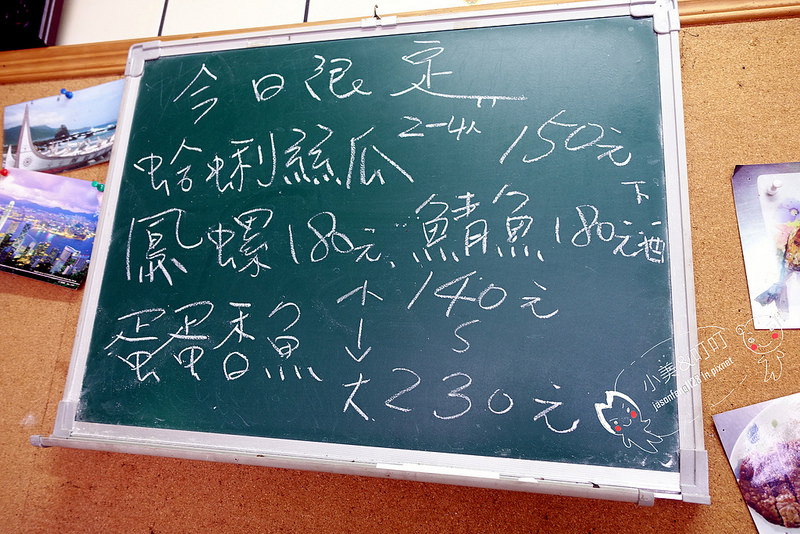 今日限定
蛤蜊絲瓜 2-4人 150元
鳳螺180元、鯖魚180元 下酒
蛋蛋香魚 小 140元
↓ S
大 230元
小美&叮叮